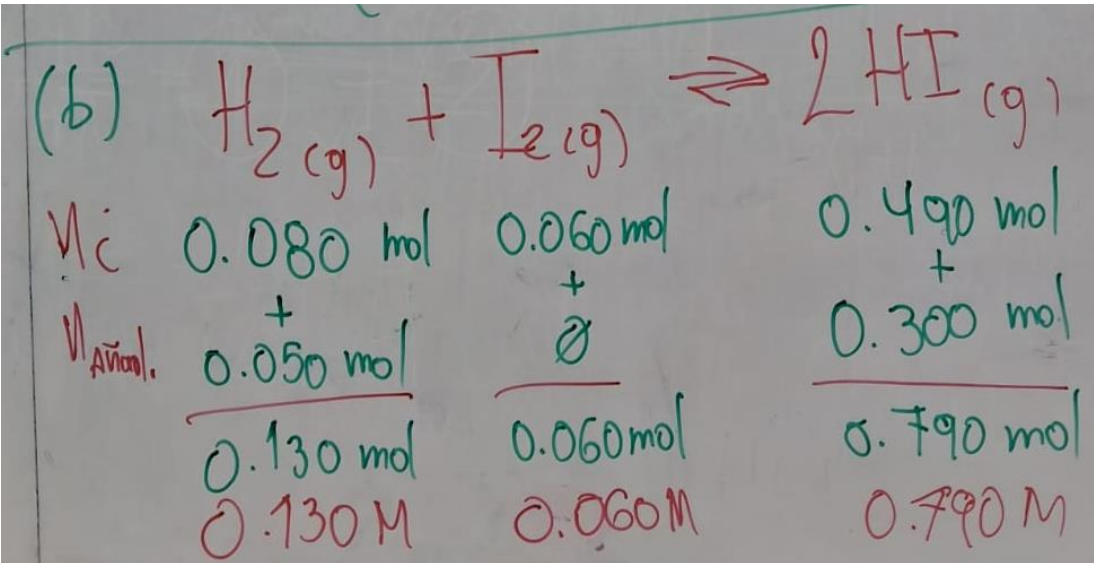 (b) H₂(g) + I₂(g) ⇌ 2HI(g)
ni 0.080 mol 0.060 mol 0.490 mol
+ + +
nAñad. 0.050 mol ∅ 0.300 mol
0.130 mol 0.060 mol 0.790 mol
0.130 M 0.060 M 0.790 M